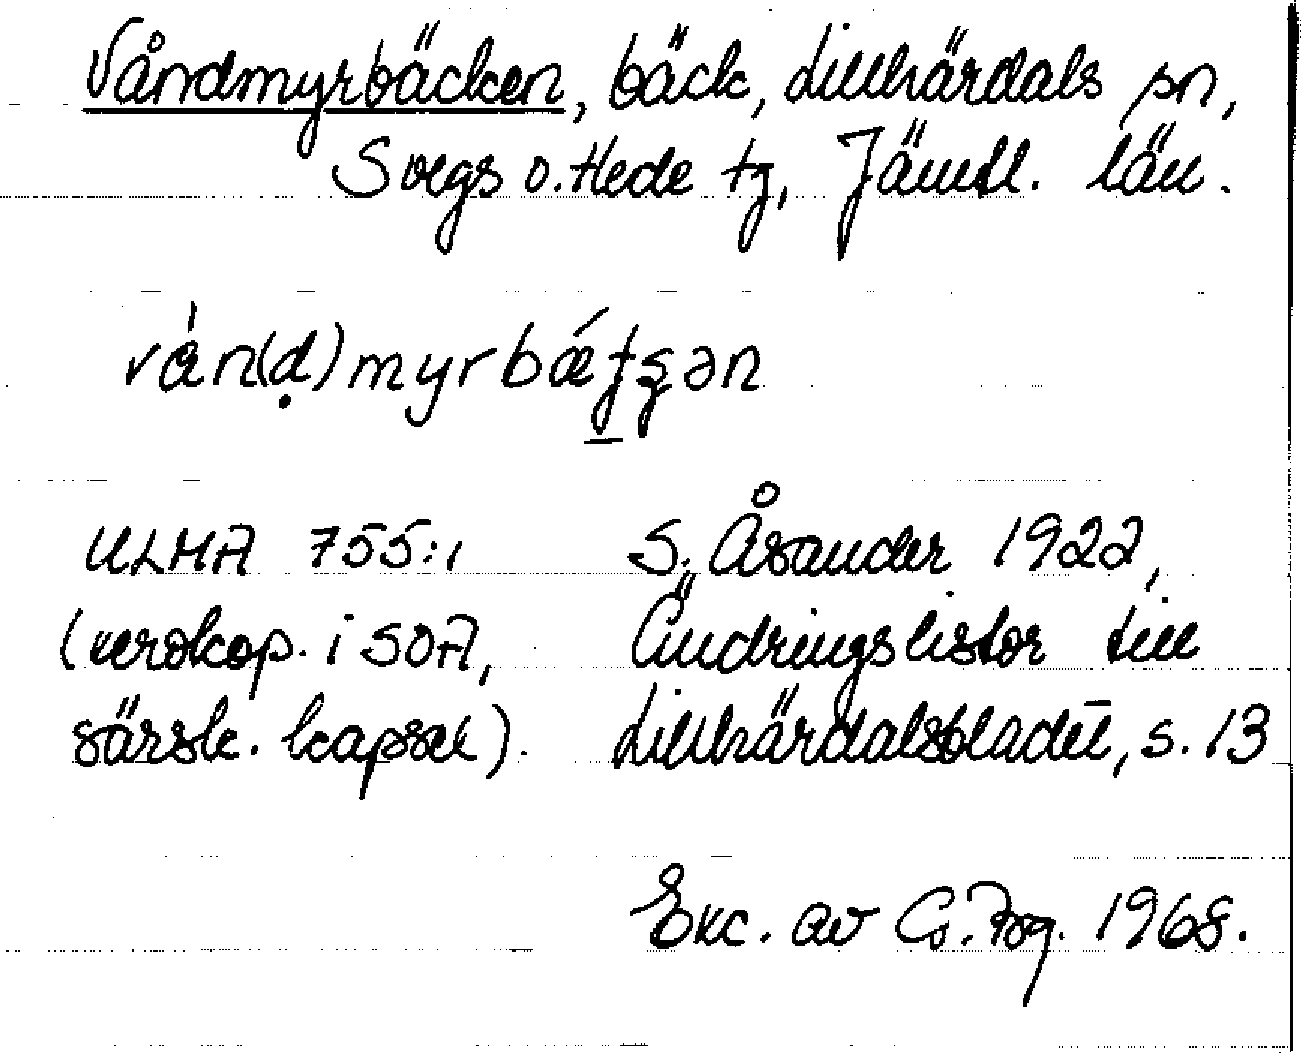 Våndmyrbäcken, bäck, Lillhärdals sn,
Svegs o. Hede tg, Jämtl. län.
vån(ḍ)myrbǽtʂən
ULMA 755:1 S. Åsander 1922,
(xerokop. i SOA, Ändringslistor till
särsk. kapsel). Lillhärdalsbladet, s. 13
Exc. av G. 1968.